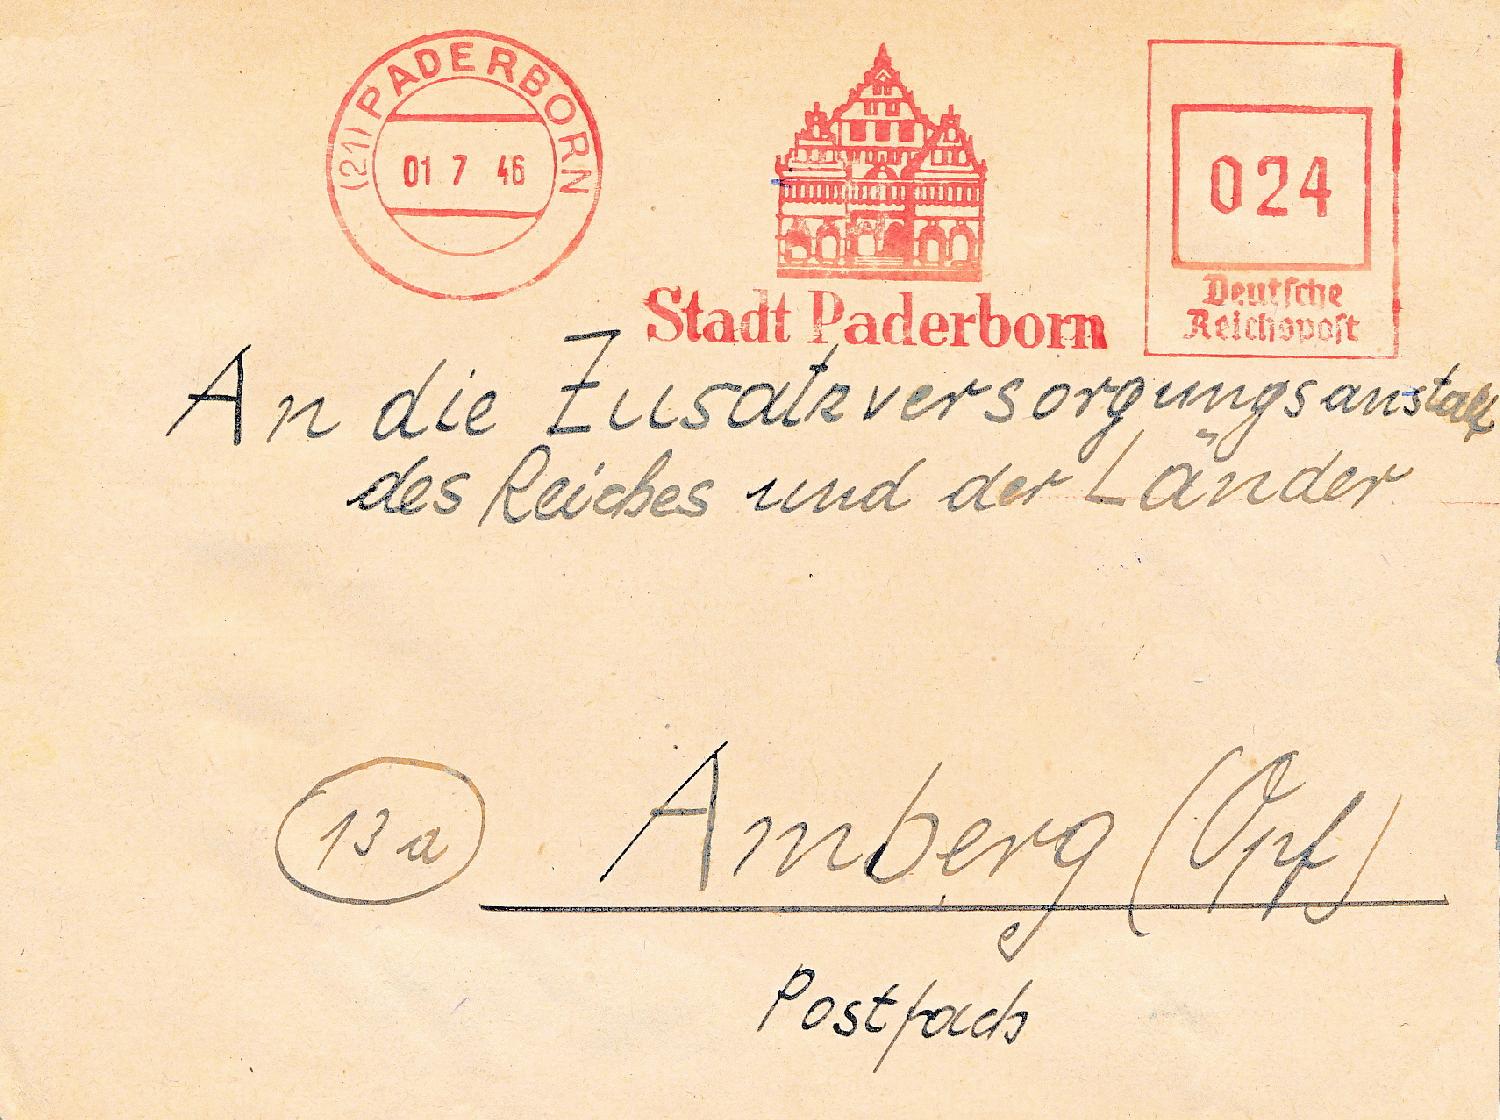 (21) PADERBORN
01 7 46
Stadt Paderborn
024
Deutsche
Reichspost
An die Zusatzversorgungsanstalt
des Reiches und der Länder
13a
Amberg (Opf)
Postfach